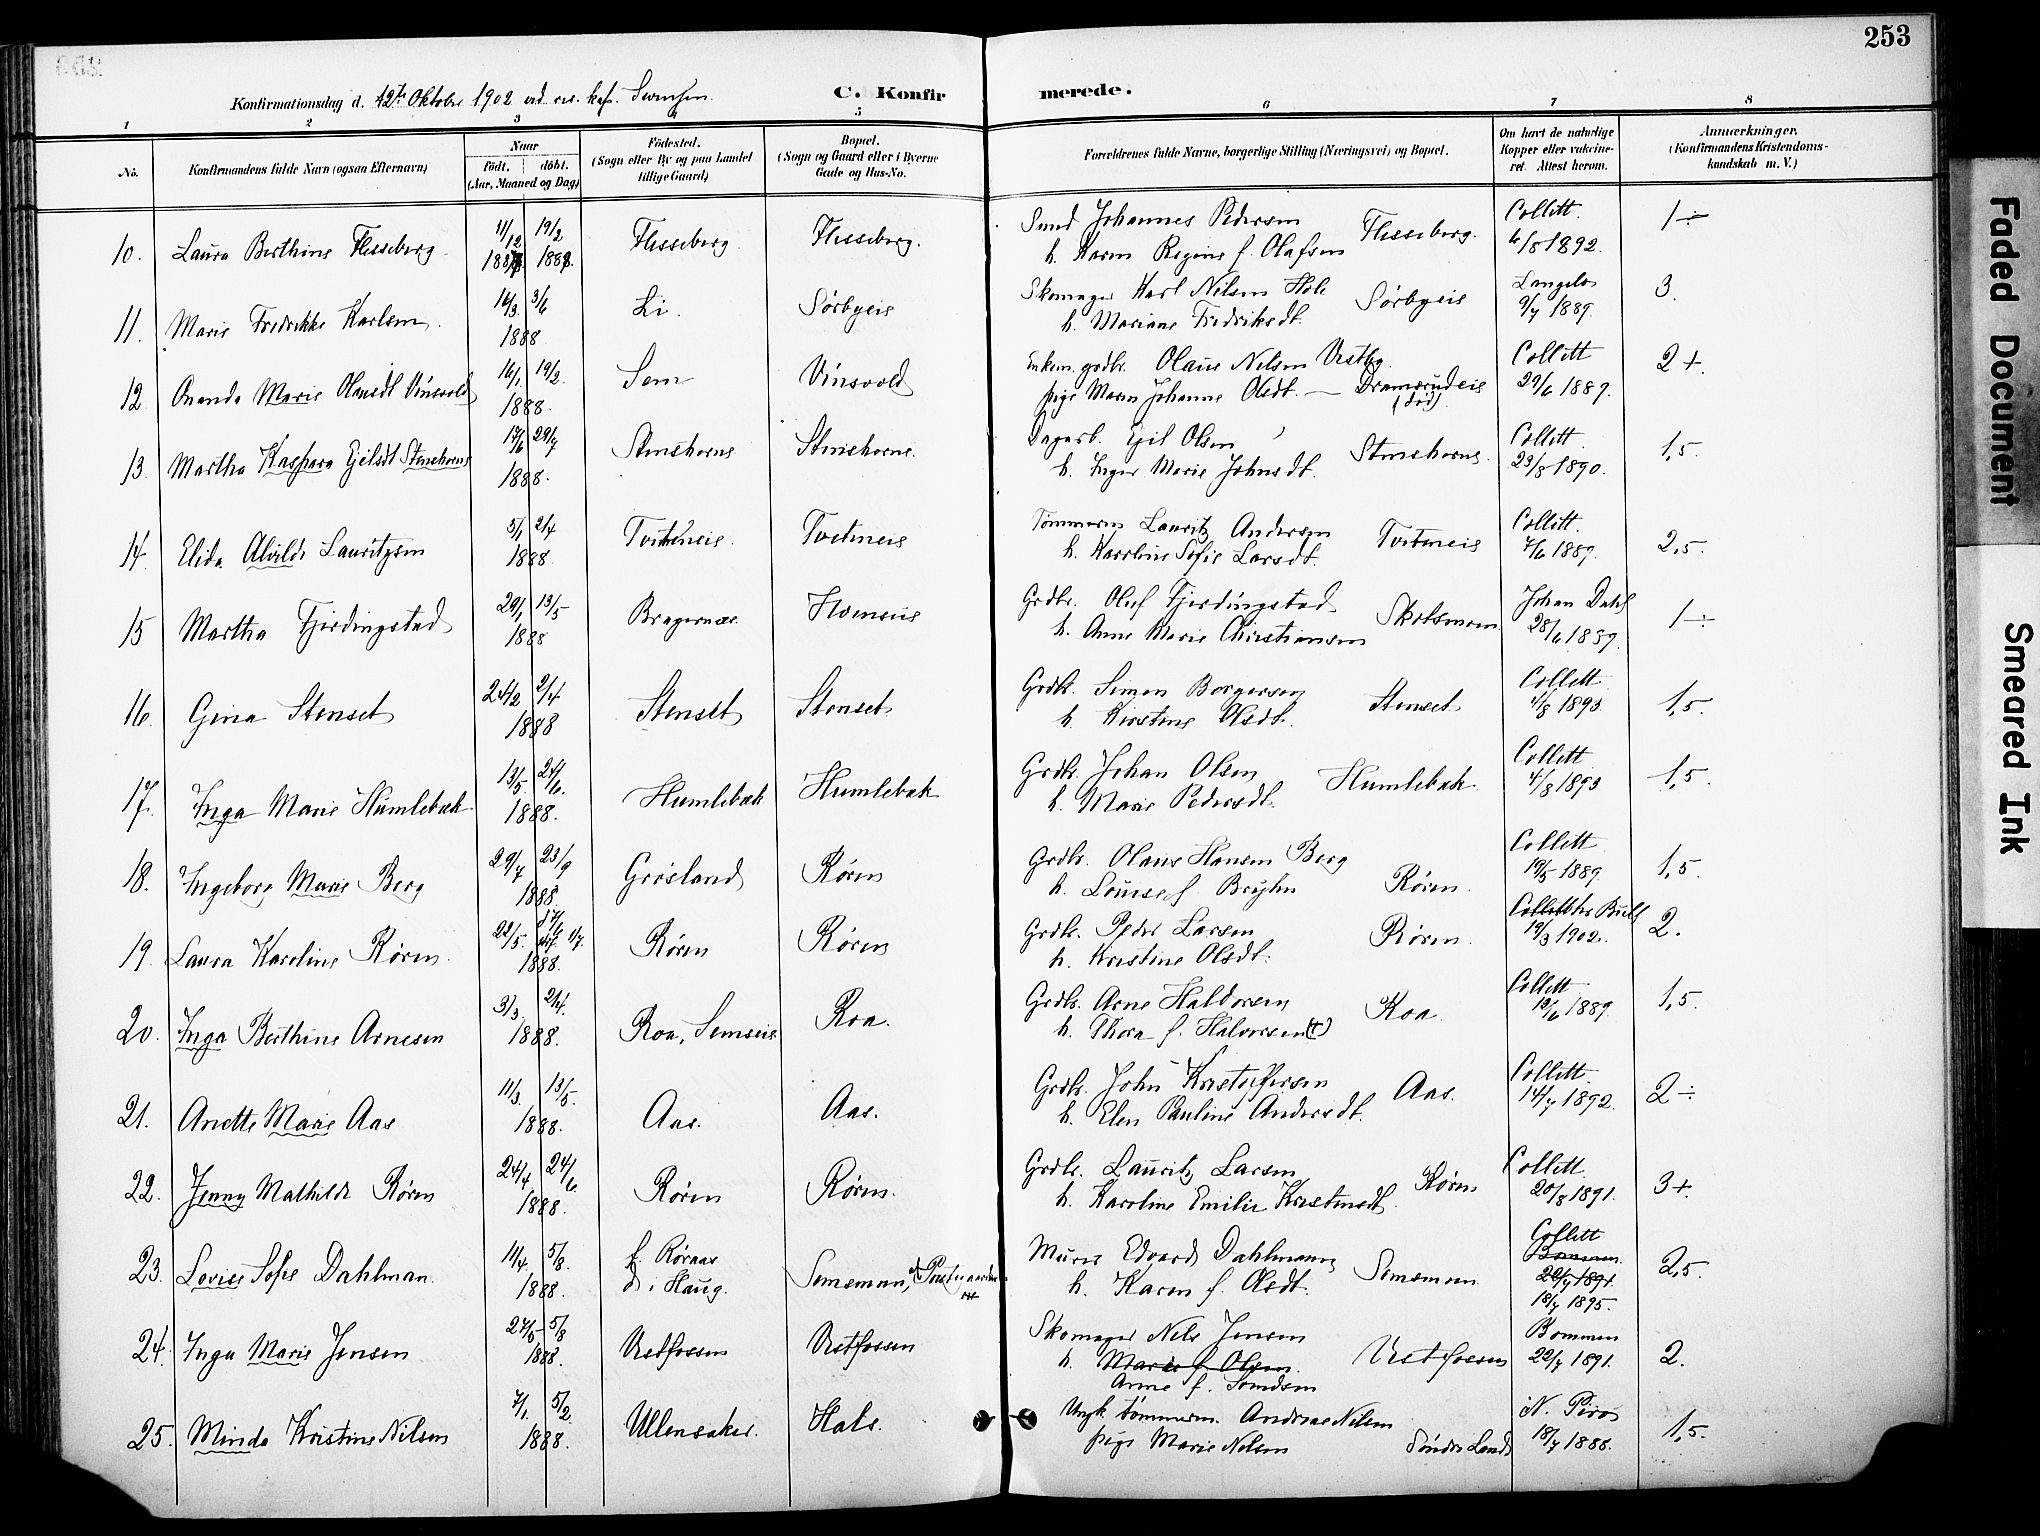 253
Konfirmationsdag d. 12te Oktober 1902 ved res. kap.
C. Konfirmerede.
1 2 3 4 5 6 7 8
No.
Konfirmandens fulde Navn (ogsaa Efternavn)
Naar
födt. döbt.
(Aar, Maaned og Dag)
Födested.
(Sogn eller By og paa Landet
tillige Gaard)
Bopæl.
(Sogn og Gaard eller i Byerne
Gade og Hus-No.
Forældrenes fulde Navne, borgerlige Stilling (Næringsvei) og Bopæl.
Om havt de naturlige
Kopper eller vakcine-
ret. Attest herom.
Anmærkninger.
(Konfirmandens Kristendoms-
kundskab m. V.)
10. Laura Berthine Flesseberg 11/12 19/2 1888 Flesseberg. Flesseberg.
Smed Johannes Pedersen
h. Karen Regine f. Olafsen Flesseberg. Collett. 6/8 1892. 1÷
11. Marie Fredrikke Karlsen. 16/3 3/6 1888 Li. Sørbyeie
Skomager Karl Nilsen Hole
h. Mariane Fredriksdt. Sørbyeie 9/7 1889. 3.
12 Ananda Marie Olausdt Vinsvold 16/1 19/2. 1888. Sem Vinsvold
Enkem. grdbr. Olaus Nilsen Vestby.
pige Maren Johanne Olsdt. — Dramsrudeie (død). Collett 29/6 1889. 2+
13. Martha Kaspara Ejelsdt Stenshorne 17/6 29/7 1888. Stenshorne Stenshorne.
Dagarb. Ejel Olsen
h. Inger Marie Johnsdt. Stenshorne. Collett. 23/8 1890. 1,5.
14. Elida Alvilde Lauritzsen 5/1 2/4 1888. Tveteneie. Tveteneie
Tømmerm Lauritz Andersen
h. Karoline Sofie Larsdt. Tveteneie Collett. 7/6 1889. 2,5.
15 Martha Fjerdingstad 29/1 13/5 1888 Bragernæs.
Grdbr. Oluf Fjerdingstad
h. Anne Marie Christiansen Skotsmoen Johan Dahl 28/6 1889. 1÷
16. Gina Stenset 24/2 2/4 1888 Stenset Stenset
Grdbr. Simen Borgersen
h. Kirstine Olsdt. Stenset Collett 4/8 1893. 1,5.
17. Inga Marie Humlebæk 13/5. 24/6. 1888. Humlebæk Humlebæk
Grdbr. Johan Olsen
h. Marie Pedersdt. Humlebæk Collett 4/8 1893 1,5.
18. Ingeborg Marie Berg 29/7 23/9 1888. Grosland Røren
Grdbr. Olaus Hansen Berg
h. Louise f. Bryhn Røren. Collett. 19/5 1889. 1,5.
19. Laura Karoline Røren. 22/5. 17/6 1/7. 1888. Røren Røren
Grdbr. Peder Larsen
h. Kristine Olsdt. Røren. Bull 19/3 1902. 2.
20. Inga Berthine Arnesen 3/3. 2/4. 1888. Roa, Semseie Roa.
Grdbr. Arne Haldorsen
h. Thora f. Halvorsen (†) Roa Collett 12/6 1889. 1,5.
21. Anette Marie Aas 11/3. 13/5. 1888. Aas. Aas.
Grdbr. John Kristoffersen
h. Elen Pauline Andersdt. Aas. Collett. 14/7 1892. 2÷
22. Jenny Mathilde Røren 24/4. 24/6. 1888. Røren Røren.
Grdbr. Lauritz Larsen
h. Karoline Emilie Kristensdt. Røren Collett. 20/8 1891. 3+.
23. Lovise Sofie Dahlman. 11/4. 5/8. 1888. f. Røraas
d. i Haug. Semsmoen,
Murer Edvard Dahlmann
h. Karen f. Olsdt. Semsmoen Collett
Bommen.
22/7 1891.
18/7 1895. 2,5.
24. Inga Marie Jensen 27/5 5/8 1888. Vestfossen Vestfossen
Skomager Nils Jensen
h. Marie f. Olsen.
Anne f. Tomdsen Vestfossen Bommen 22/7 1891. 2.
25. Minda Kristine Nilsen 7/1. 5/2. 1888. Ullensaker. Hals.
Ungk. tømmerm. Andreas Nilsen
pige Marie Nilsen Sønder Land N. Piro 18/7 1888. 1,5.
Faded Document
Smeared Ink